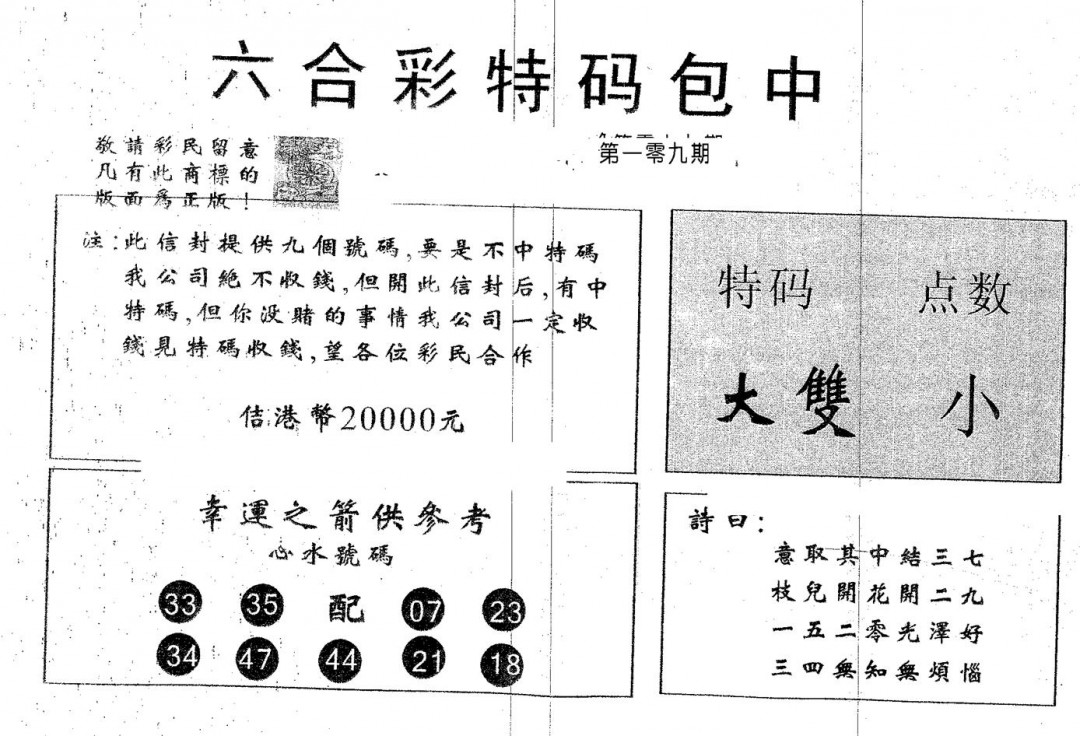 六合彩特码包中
第一零九期
敬請彩民留意
凡有此商標的
版面爲正版！
注：此信封提供九個號碼，要是不中特碼
我公司絶不收錢，但開此信封后，有中
特碼，但你没賭的事情我公司一定收
錢見特碼收錢，望各位彩民合作
佶港幣20000元
特码 点数
大雙 小
幸運之箭供參考
心水號碼
33 35 配 07 23
34 47 44 21 18
詩曰：
意取其中結三七
枝兒開花開二九
一五二零光澤好
三四無知無煩惱